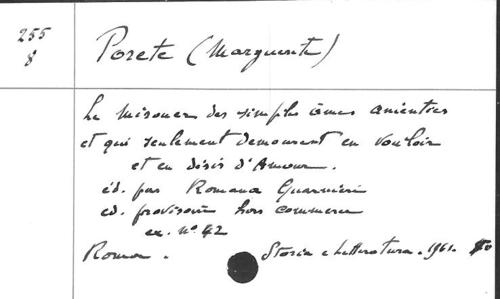 255
8
Porete (Marguerite)
Le mirouer des simples âmes anienties
et qui seulement demourent en vouloir
et en désir d'Amour.
éd. par Romana Guarnieri
éd. provisoire hors commerce
ex. nº 42
Roma. Storia e Letteratura. 1961.